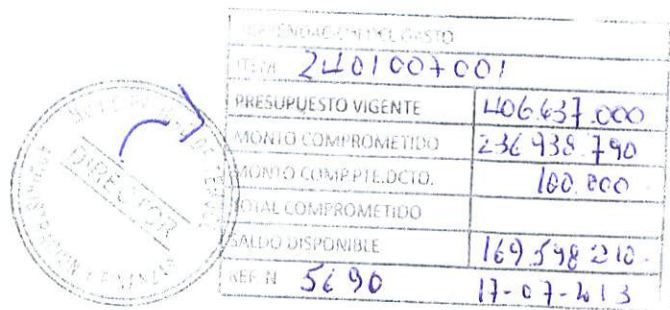 REFRENDACION DEL GASTO
ITEM 2401007001
PRESUPUESTO VIGENTE 406.637.000
MONTO COMPROMETIDO 236.938.790
MONTO COMP.PTE.DCTO. 100.000
TOTAL COMPROMETIDO
SALDO DISPONIBLE 169.598.210.
REF. N 5690 17-07-2013
DIRECTOR